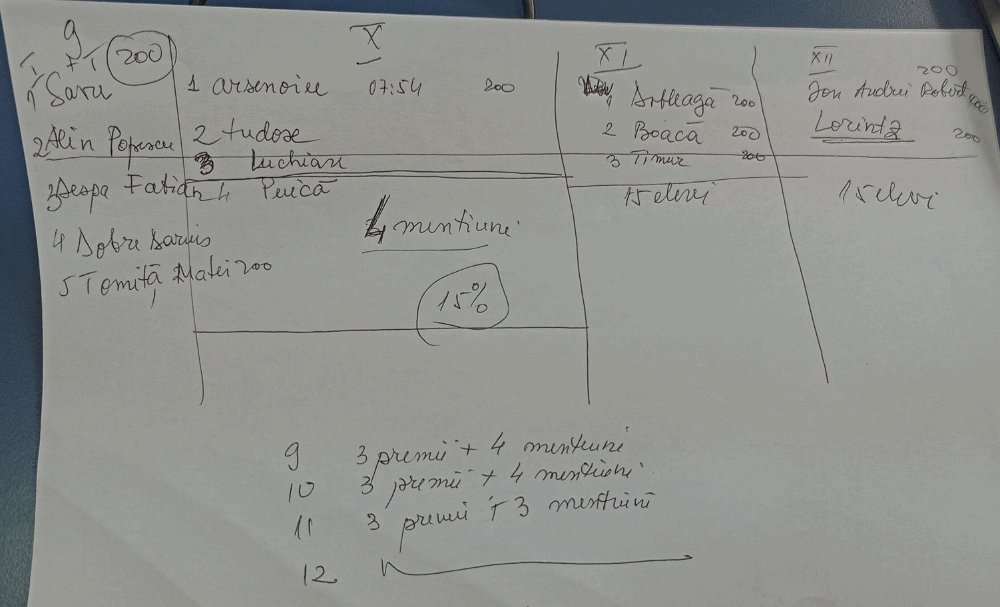 9
200
1 Savu
2 Alin Popescu
3 Fabian
4 Dobre Darius
5 Tomiță Matei 200
X
1 arsenoiu 07:54 200
2 tudose
3 Luchian
4 Puică
4 mentiuni
15%
XI
1 200
2 Boacă 200
3 Timur 200
15 elevi
XII
200
Ion Andrei Robert 200
Lorintz 200
15 elevi
9 3 premii + 4 mentiuni
10 3 premii + 4 mentiuni
11 3 premii + 3 mentiuni
12